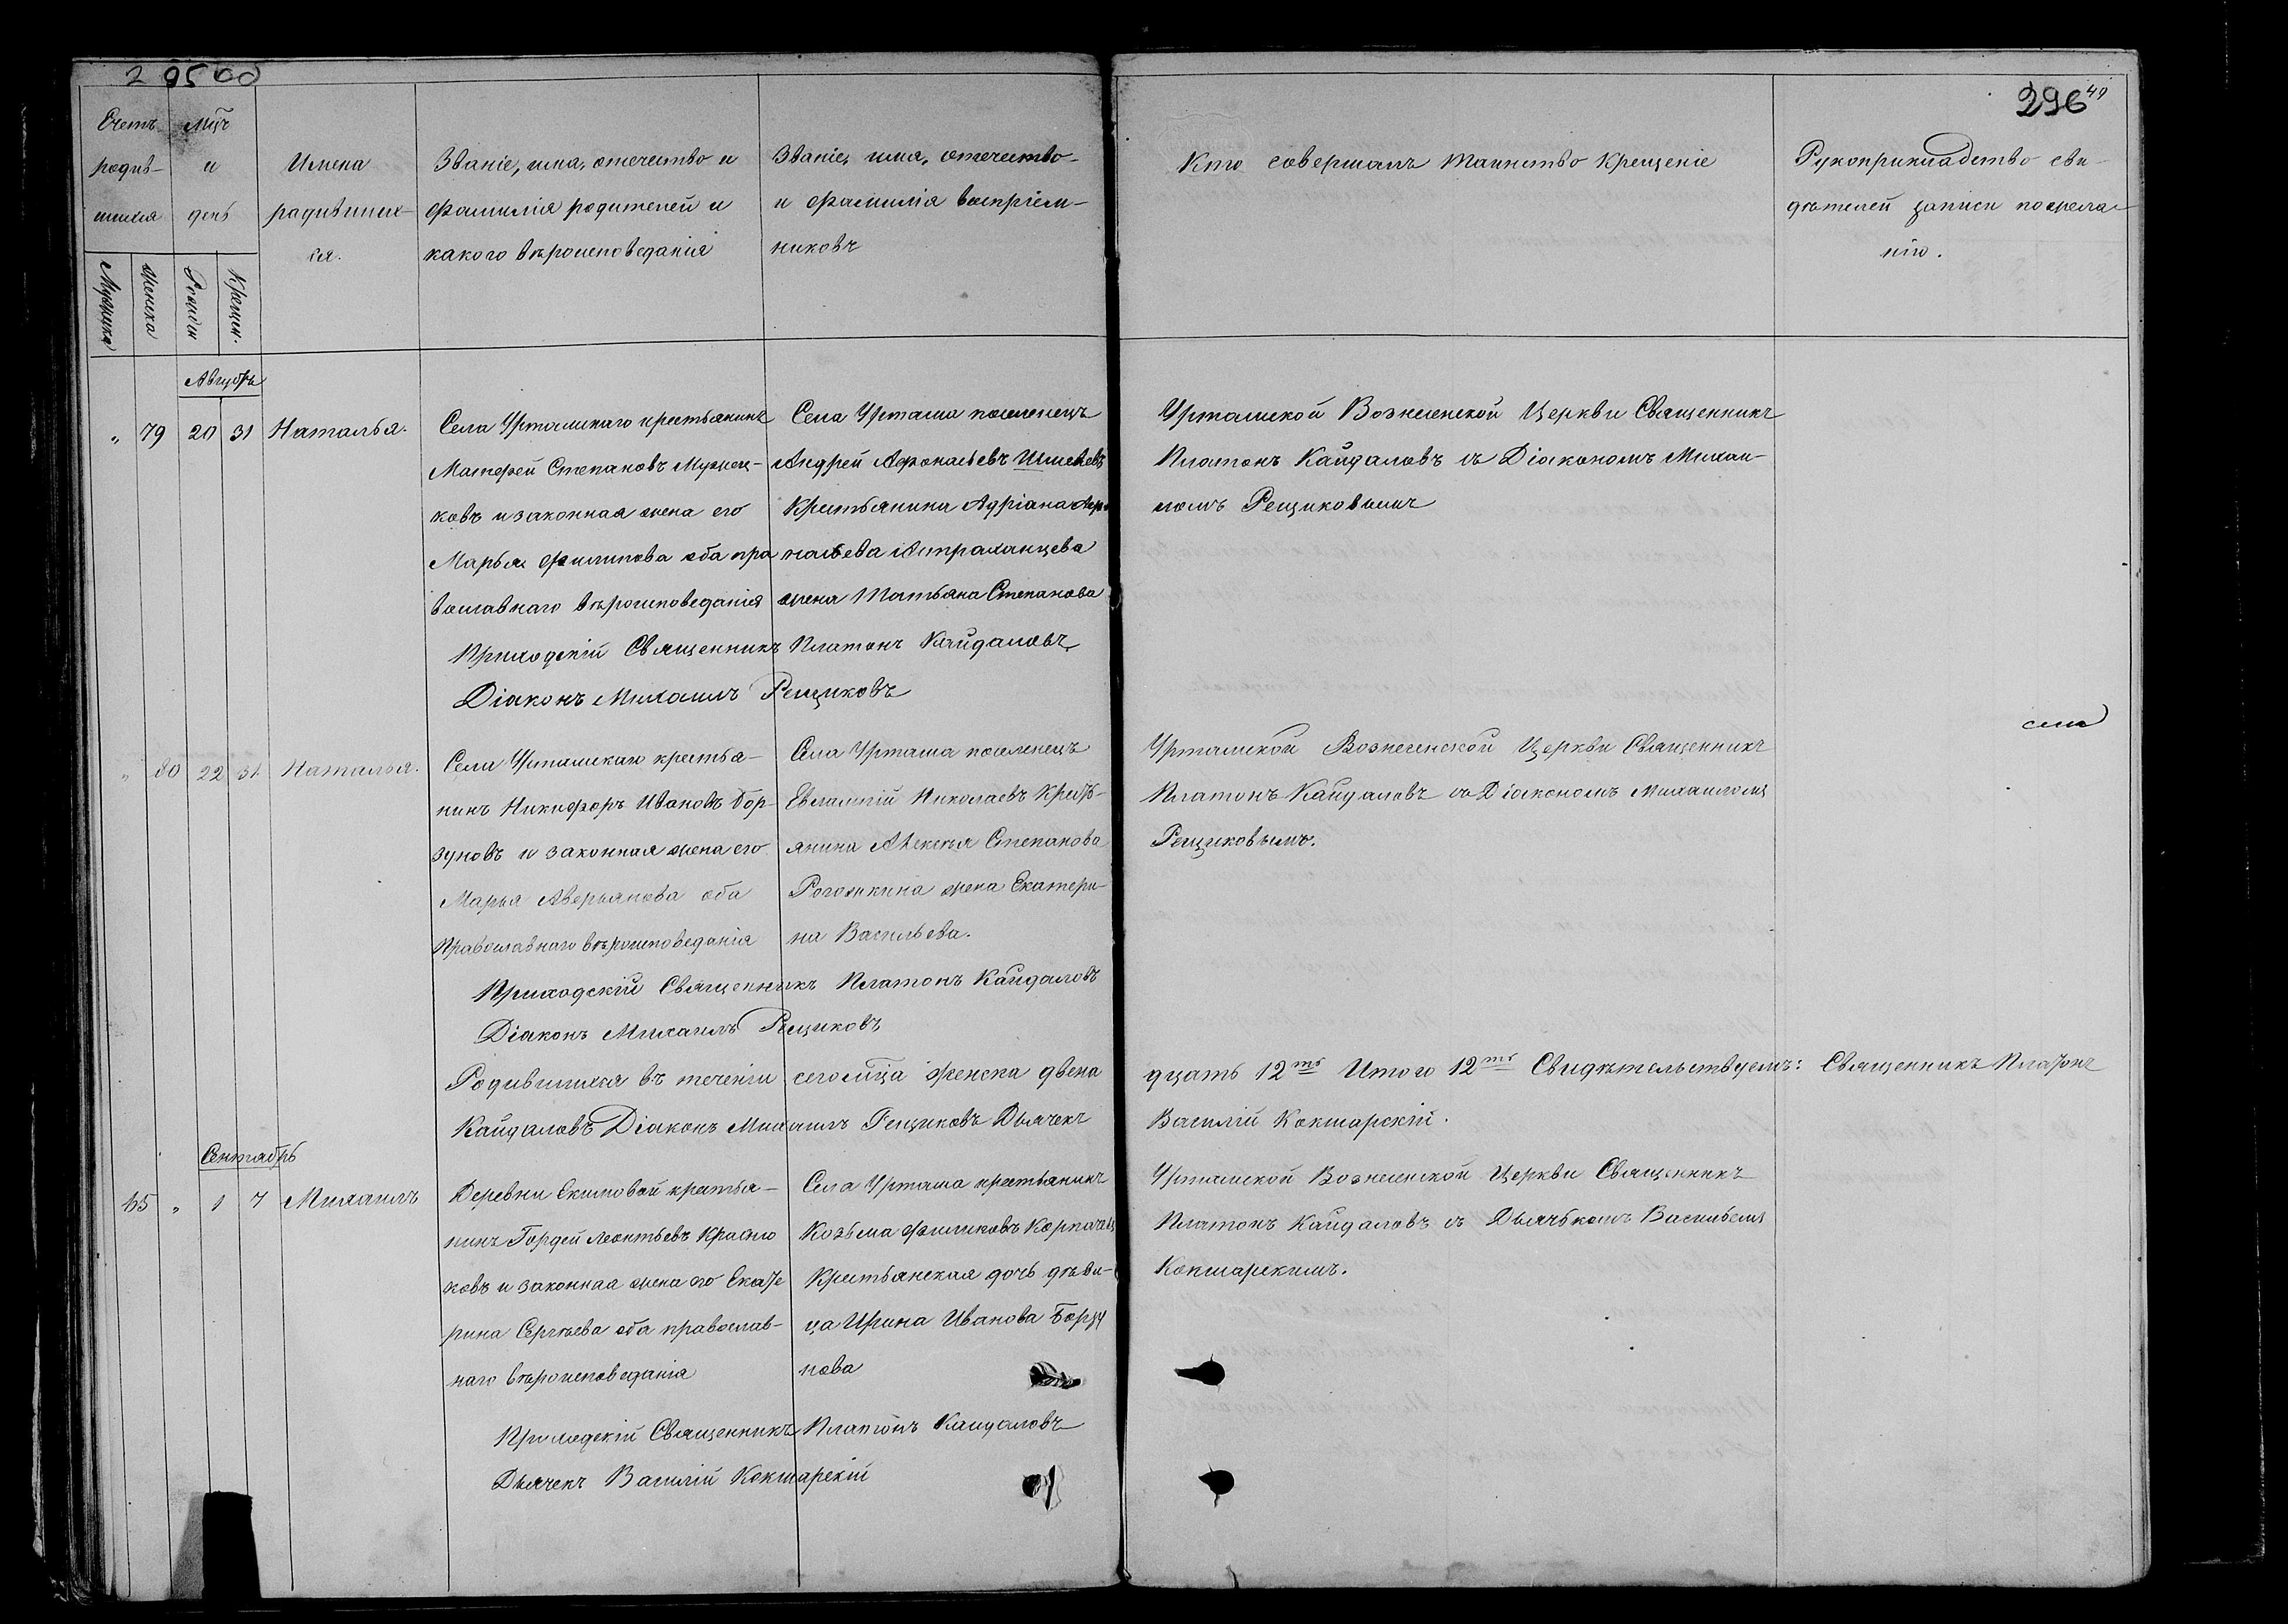 29560
296 49
Счетъ родив-шихся
Мцъ и день
Имена радившихся.
Званіе, имя, отечество и фамилія родителей и какого вѣроисповеданія
Званіе, имя, отечество и фамилія воспріемниковъ
Кто совершалъ таинство крещеніе
Рукоприкладство свидѣтелей записи по желанію.
Мужска
Женска
Рожден
Крещен.
Августъ
„ 79 20 31 Наталья.
Села Урташскаго крестьянинъ
Матфей Степановъ
ковъ и законная жена его
Марья Филипова оба пра
вославнаго вѣроисповеданія
Села Урташа поселенецъ
Андрей Афонасьевъ
Крестьянина Адріана Афо
насьева Астраханцева
жена Татьяна Степанова
Урташской Вознесенской Церкви Священникъ
Платонъ Кайдаловъ съ Діакономъ Михаи-
ломъ Рещиковымъ
Приходскій Священникъ Платонъ Кайдаловъ
Діаконъ Михаилъ Рещиковъ
„ 80 22 31 Наталья.
Села Урташскаго крестья-
нинъ Никифоръ Ивановъ Бор-
зуновъ и законная жена его
Марья Аверьянова оба
Православнаго вѣроисповеданія
Села Урташа поселенецъ
Евлампій Николаевъ Кресть-
янина Алексѣя Степанова
Рогожкина жена Екатери-
на Васильева.
Урташской Вознесенской Церкви Священникъ
Платонъ Кайдаловъ съ Діакономъ Михаиломъ
Рещиковымъ.
Приходскій Священникъ Платонъ Кайдаловъ
Діаконъ Михаилъ Рещиковъ
Родившихся въ теченіи сего мца женска двена
дцать 12ть Итого 12ть Свидѣтельствуемъ: Священникъ Платонъ
Кайдаловъ Діаконъ Михаилъ Рещиковъ Дьячекъ
Василій Кокшарскій.
Сентябрь
65 „ 1 7 Михаилъ
Деревни Екимовой крестья-
нинъ Гордей Леонтьевъ
ковъ и законная жена его Екате
рина Сергѣева оба православ-
наго вѣроисповеданія
Села Урташа крестьянинъ
Козьма Филиповъ
Крестьянская дочь дѣви-
ца Ирина Иванова Борзу
нова
Урташской Вознесенской Церкви Священникъ
Платонъ Кайдаловъ съ Дьячькомъ Васильемъ
Кокшарскимъ.
Приходскій Священникъ Платонъ Кайдаловъ
Дьячекъ Василій Кокшарскій